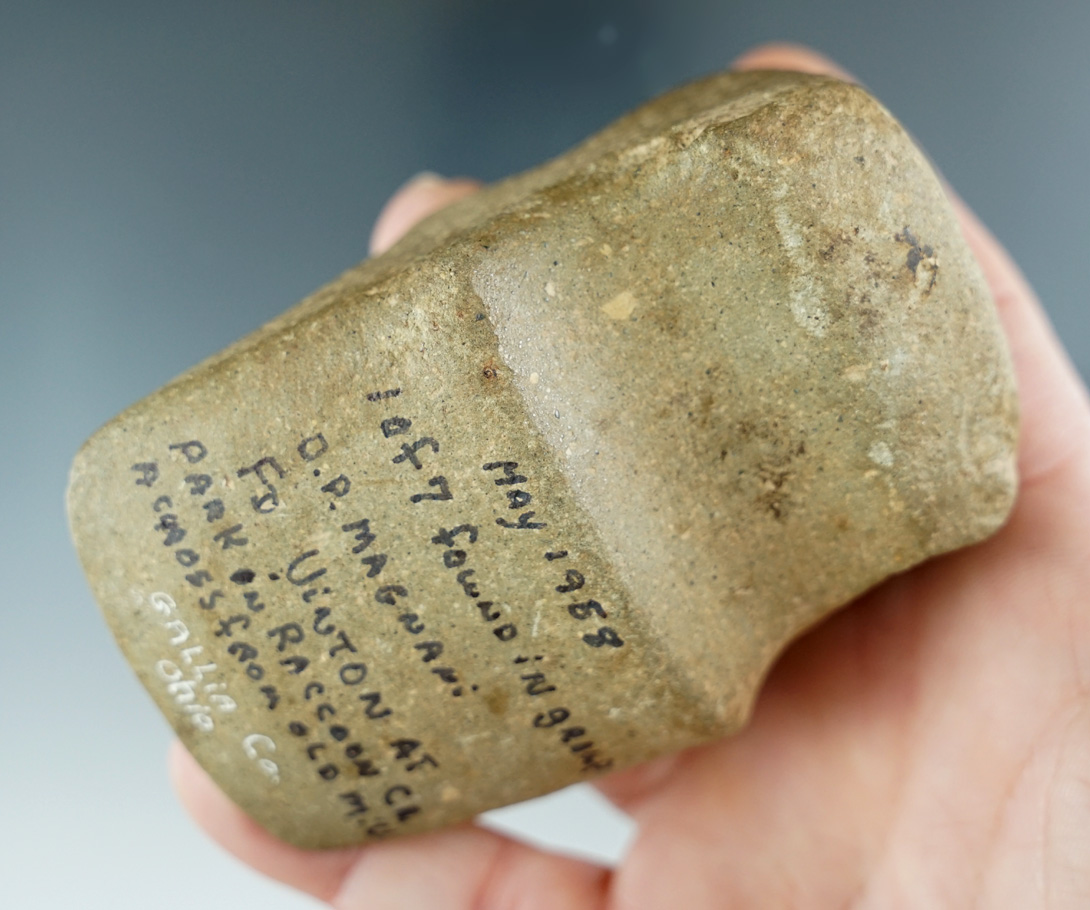 MAY 1988
1 of 7 found in grin
O.P. MAGNANi
Fd Vinton At
PARK iN RACCOON CK
Across from OLD Mil
GALLIA Co.
Ohio